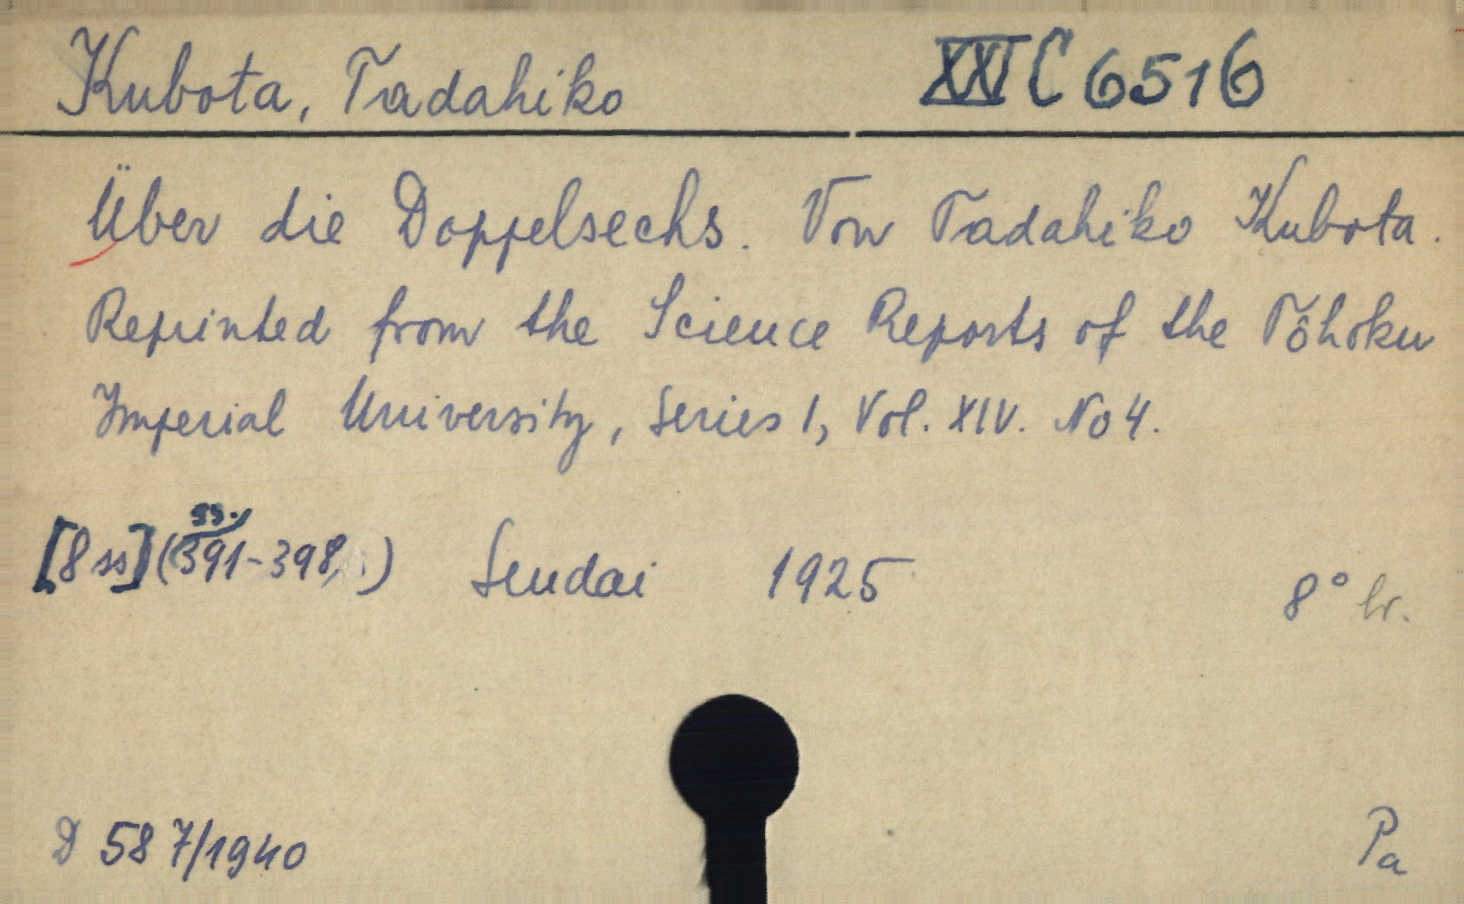 Kubota, Tadahiko XXI C 6516
Über die Doppelsechs. Von Tadahiko Kubota.
Reprinted from the Science Reports of the Tôhoku
Imperial University, Series I, Vol. XIV. No 4.
ss.
[8 ss] (391-398, ) Sendai 1925 8° br.
D 587/1940 Pa